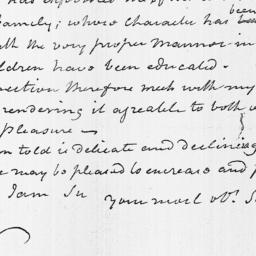 been
family; whose character has
the very proper manner in
ldren have been educated.
ection therefore meets with my
rendering it agreeable to both
pleasure —
n told is delicate and declining
e may be pleased to increase and
I am Sir
your most obt. S